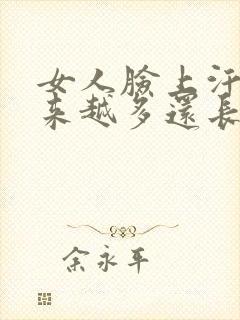 女人臉上汗
來越多還長
余永平